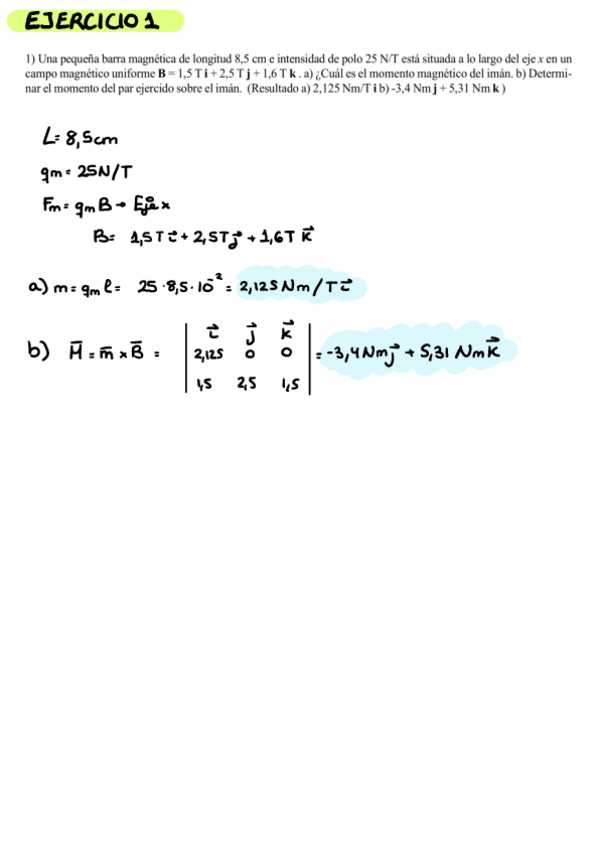 EJERCICIO 1
1) Una pequeña barra magnética de longitud 8,5 cm e intensidad de polo 25 N/T está situada a lo largo del eje x en un
campo magnético uniforme B = 1,5 T i + 2,5 T j + 1,6 T k . a) ¿Cuál es el momento magnético del imán. b) Determi-
nar el momento del par ejercido sobre el imán. (Resultado a) 2,125 Nm/T i b) -3,4 Nm j + 5,31 Nm k )
L= 8,5cm
qm = 25N/T
Fm = qm B → Eje x
B= 1,5 T i⃗ + 2,5T j⃗ + 1,6T k⃗
a) m = qm l = 25 · 8,5 · 10⁻² = 2,125 Nm/T i⃗
b) M̄ = m̄ x B̄ = | i⃗ j⃗ k⃗ |
| 2,125 0 0 | = -3,4 Nm j⃗ + 5,31 Nm k⃗
| 1,5 2,5 1,5 |